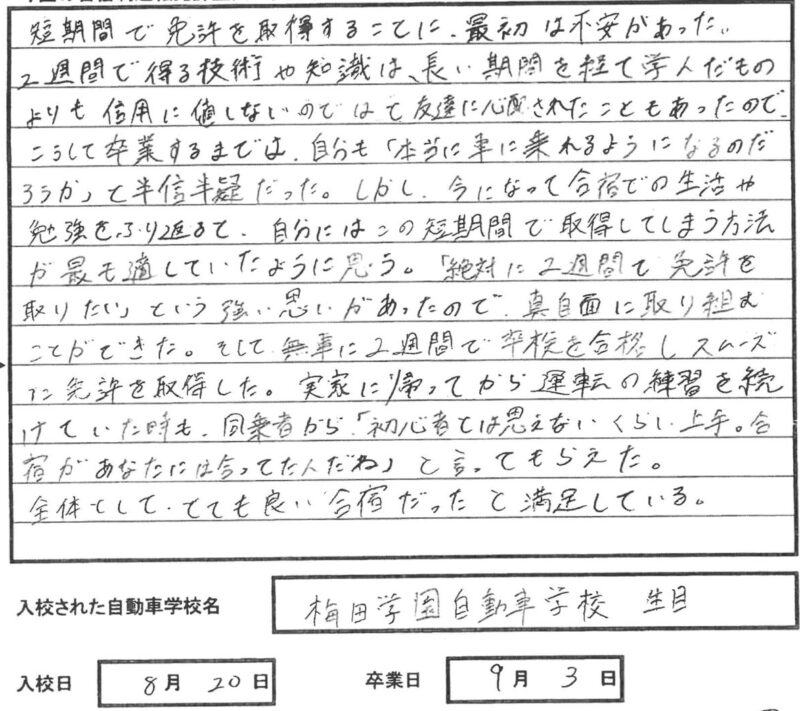 短期間で免許を取得することに、最初は不安があった。
2週間で得る技術や知識は、長い期間を経て学んだもの
よりも信用に値しないのではと友達に心配されたこともあったので、
こうして卒業するまでは、自分も「本当に車に乗れるようになるのだ
ろうか」と半信半疑だった。しかし、今になって合宿での生活や
勉強をふり返ると、自分にはこの短期間で取得してしまう方法
が最も適していたように思う。「絶対に2週間で免許を
取りたい」という強い思いがあったので、真面目に取り組む
ことができた。そして無事に2週間で卒検を合格しスムーズ
に免許を取得した。実家に帰ってから運転の練習を続
けていた時も、同乗者から「初心者とは思えないくらい上手。合
宿があなたには合ってたんだね」と言ってもらえた。
全体として、とても良い合宿だったと満足している。
入校された自動車学校名 梅田学園自動車学校
入校日 8月 20日 卒業日 9月 3日